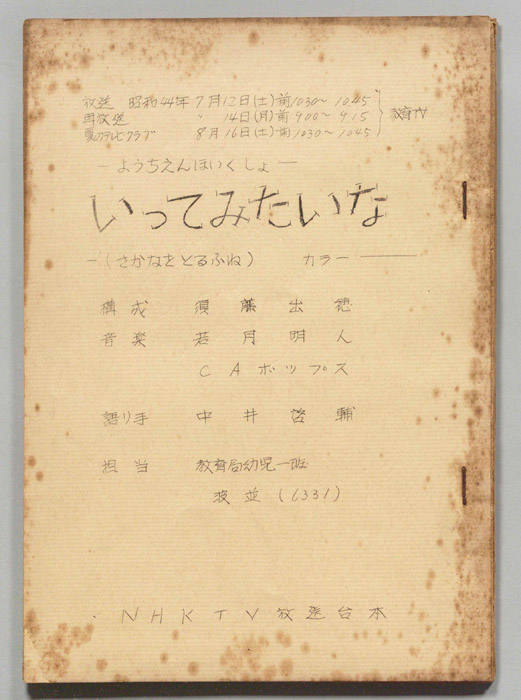 放送 昭和44年7月12日(土)前10:30～10:45
再放送 〃 14日(月)前9:00～9:15 教育TV
夏のテレビクラブ 8月16日(土)前10:30～10:45
—ようちえんほいくしょ—
いってみたいな
—(さかなをとるふね) カラー—
構成 須藤出穂
音楽 若月明人
CAポップス
語り手 中井啓輔
担当 教育局幼児一班
波並(6331)
NHKTV放送台本